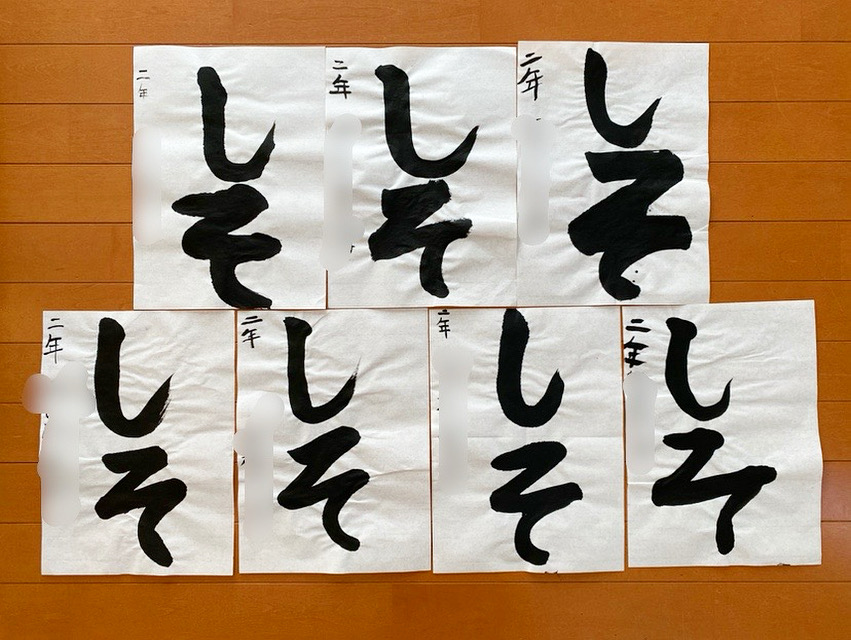 しそ
二年
しそ
二年
しそ
二年
しそ
二年
しそ
二年
しそ
二年
しそ
二年